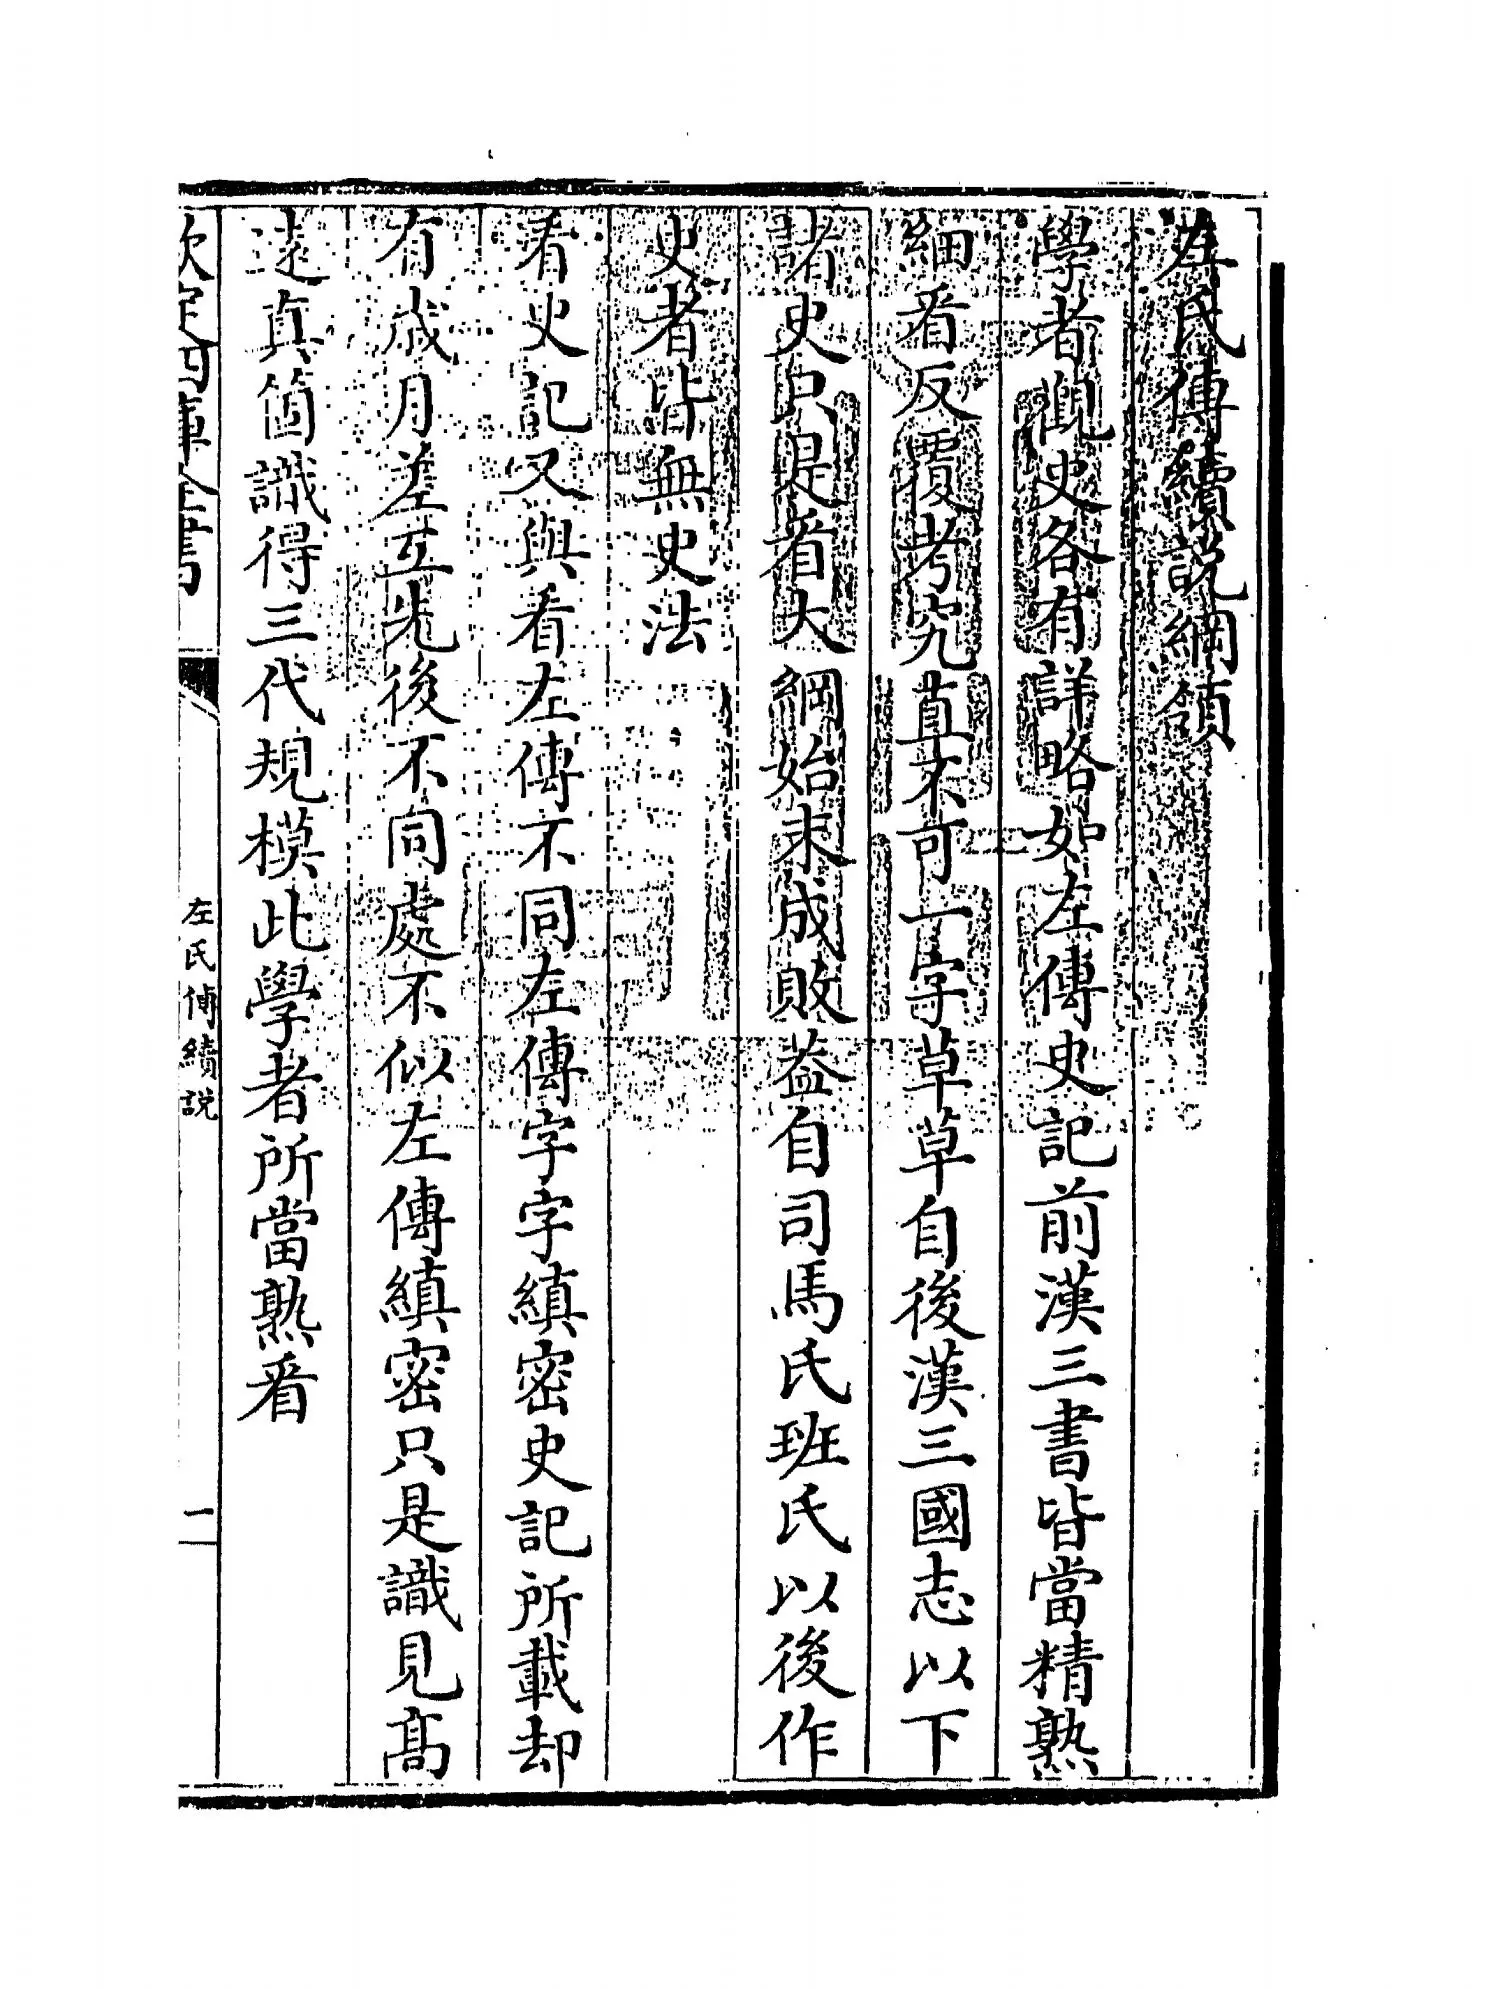 左氏傳續說綱領
學者觀史各有詳略如左傳史記前漢三書皆當精熟
細看反覆考究真不可一字草草自後漢三國志以下
諸史只是看大綱始末成敗蓋自司馬氏班氏以後作
史者皆無史法
看史記又與看左傳不同左傳字字縝密史記所載却
有歲月差互先後不同處不似左傳縝密只是識見高
遠真箇識得三代規模此學者所當熟看
欽定四庫全書
左氏傳續說
二